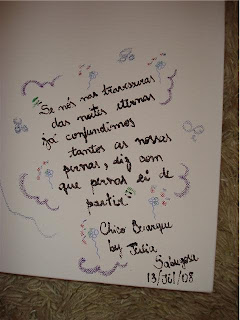 Se nós nas travessuras
das noites eternas
já confundimos
tantos as nossas
pernas, diz com
que pernas ei de
partir"
Chico Buarque
by Júlia
13/Jul/08